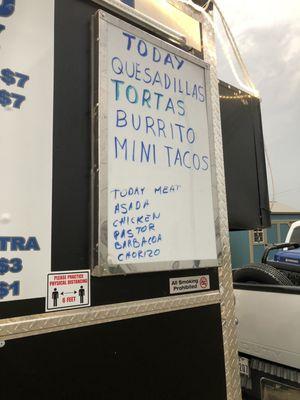 $7
$7
TRA
$3
$1
TODAY
QUESADILLAS
TORTAS
BURRITO
MINI TACOS
TODAY MEAT
ASADA
CHICKEN
PASTOR
BARBACOA
CHORIZO
PLEASE PRACTICE
PHYSICAL DISTANCING
6 FEET
All Smoking
Prohibited